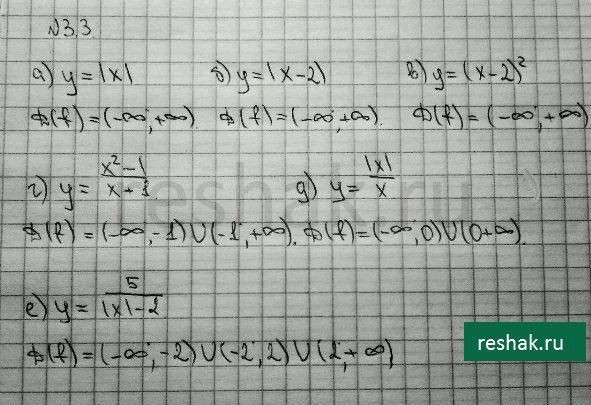 №3.3
а) y = |x|   б) y = |x-2|   в) y = (x-2)²
D(f) = (-∞; +∞).   D(f) = (-∞; +∞).   D(f) = (-∞; +∞)
г) y = (x²-1)/(x+1).   д) y = |x|/x
D(f) = (-∞, -1) ∪ (-1; +∞).   D(f) = (-∞; 0) ∪ (0 +∞).
е) y = 5/(|x|-2)
D(f) = (-∞; -2) ∪ (-2; 2) ∪ (2; +∞)
reshak.ru